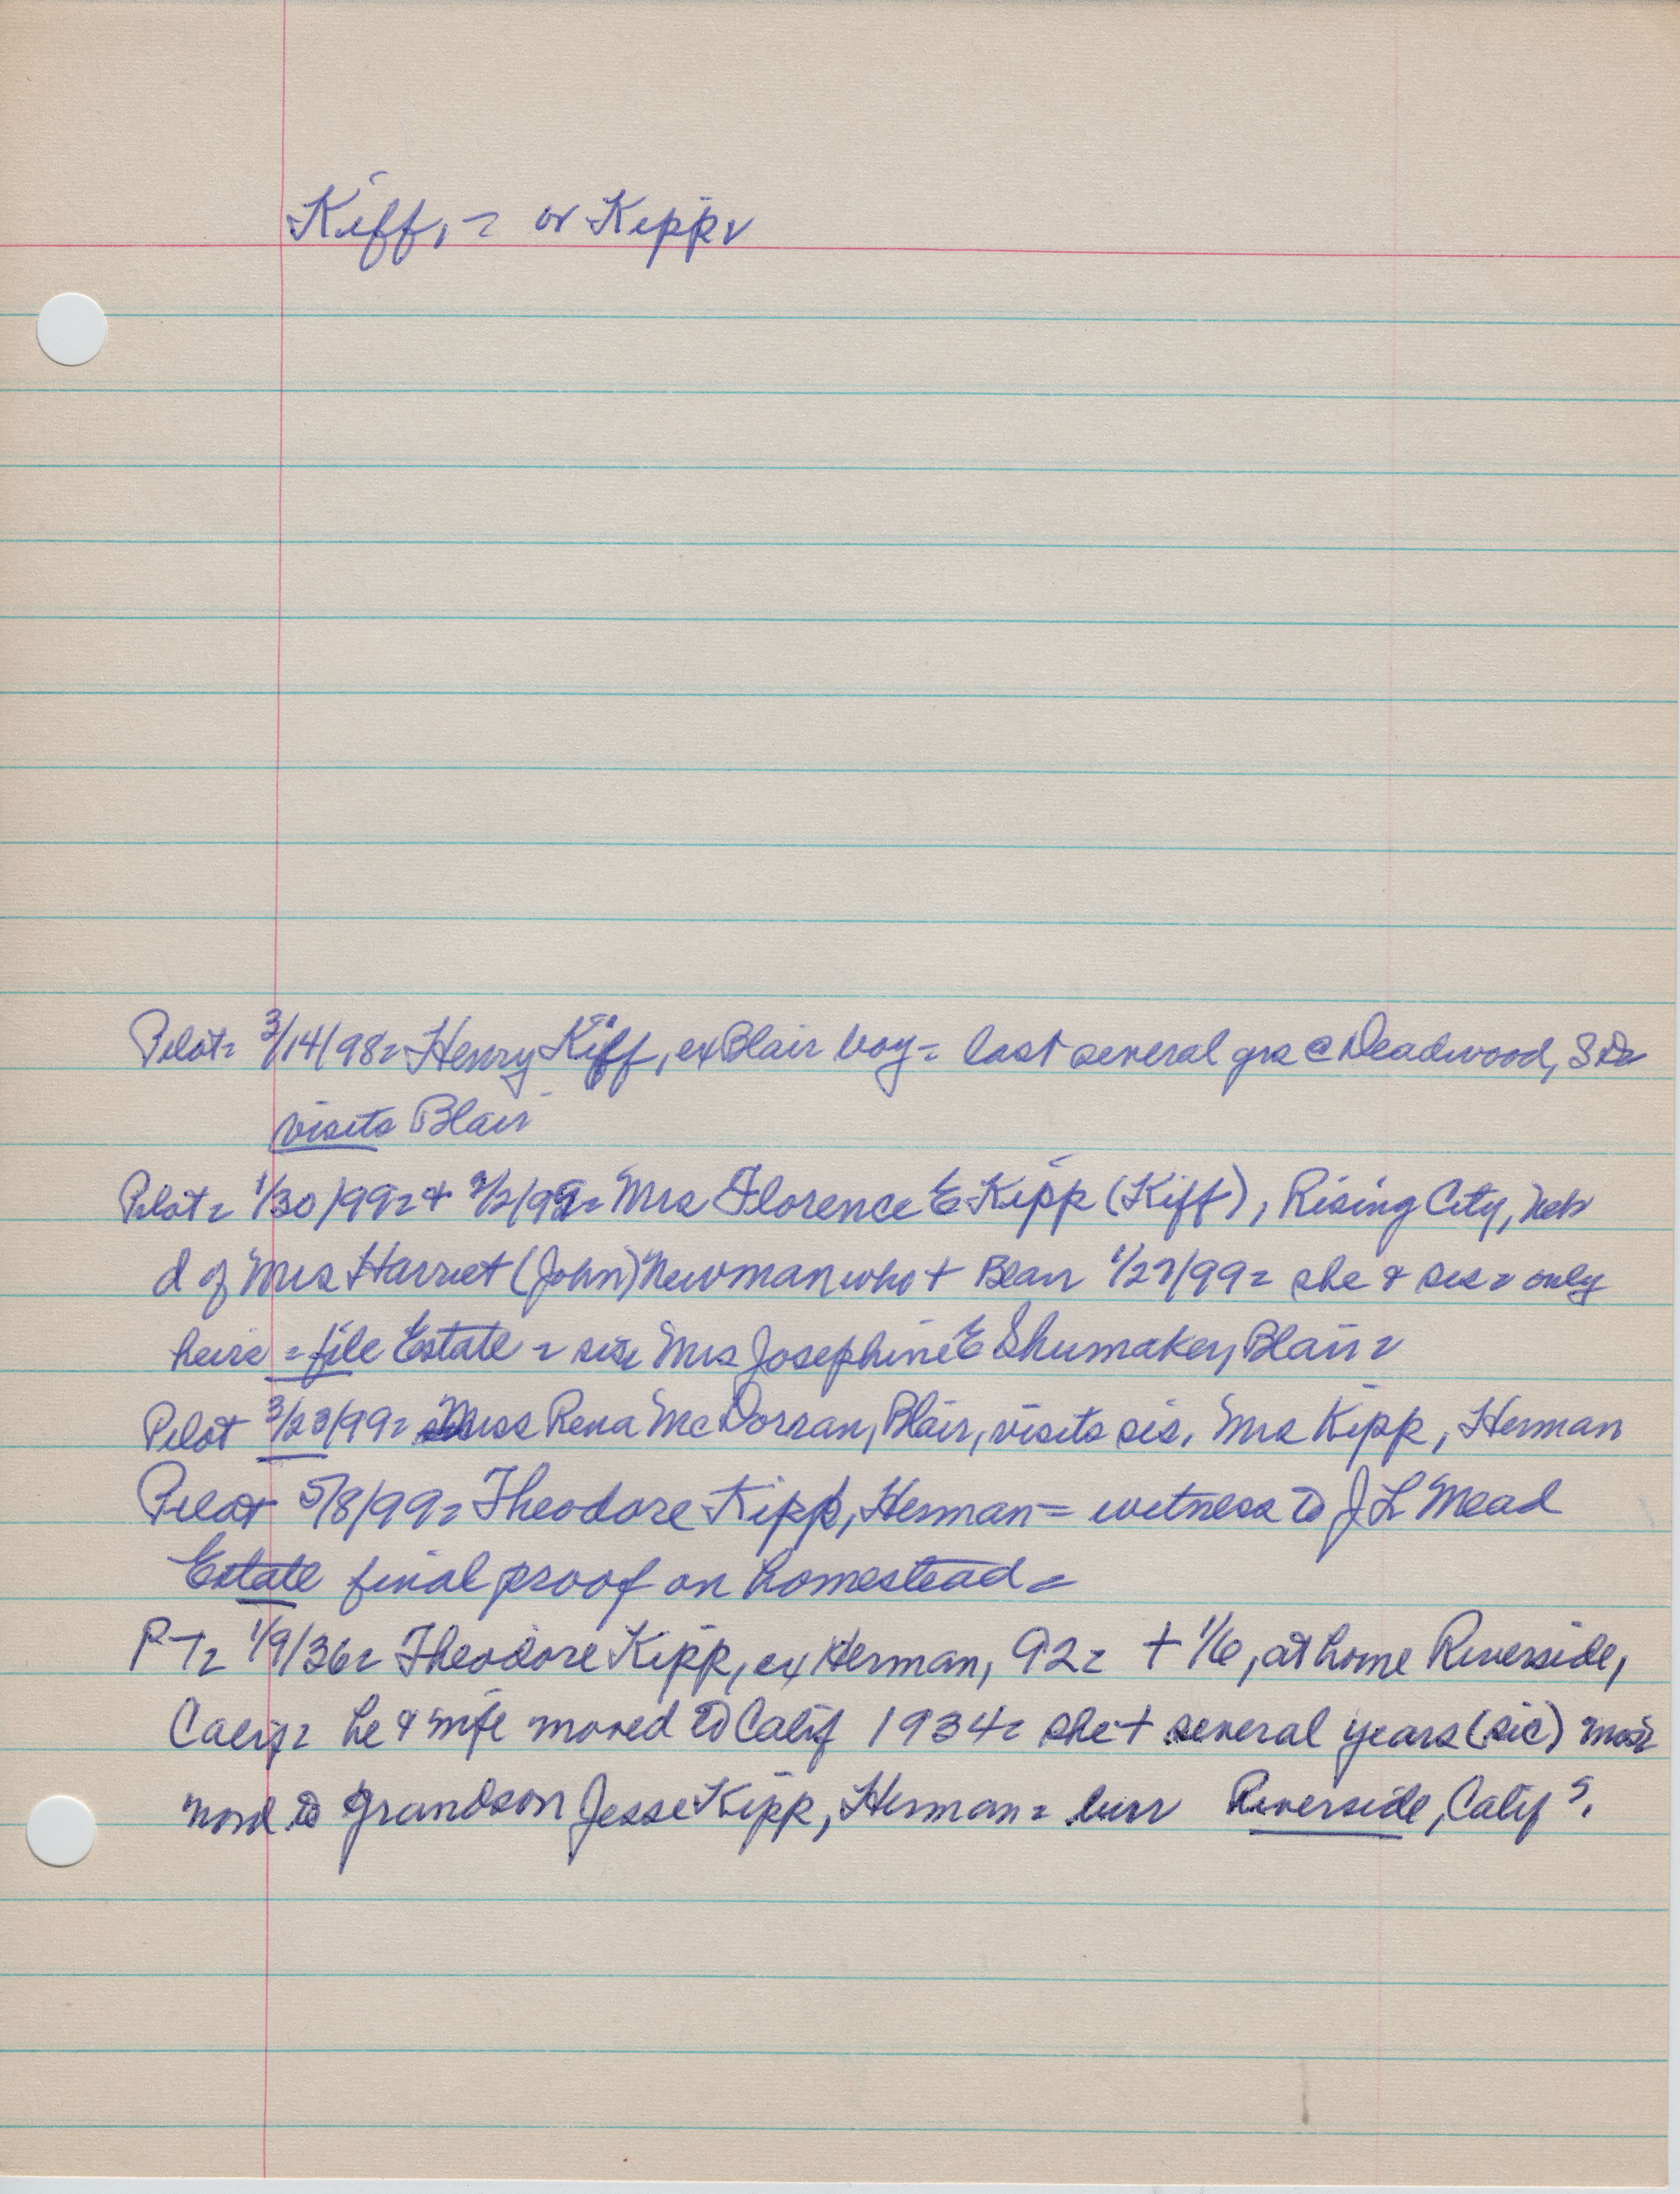 Kiff, = or Kipp=
Pilot= 3/14/98= Henry Kiff, ex Blair boy= last several yrs @ Deadwood, S Da
visits Blair
Pilot= 1/30/99= + 2/2/99= Mrs Florence E Kipp (Kiff), Rising City, Neb
d of Mrs Harriet (John) Newman who + Blair 1/27/99= she & sis= only
heirs = file Estate = sis= Mrs Josephine E Shumaker, Blair=
Pilot 3/23/99= Miss Rena McDorran, Blair, visits sis. Mrs Kipp, Herman
Pilot 5/8/99= Theodore Kipp, Herman= witness to J L Mead
Estate final proof on homestead=
P-T= 1/9/36= Theodore Kipp, ex Herman, 92= + 1/6, at home Riverside,
Calif= he & wife moved to Calif 1934= she + several years (sic)
word to grandson Jesse Kipp, Herman= burr Riverside, Calif